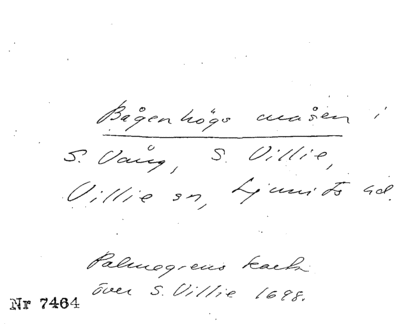 Bågenhögs måsen i
S. Vång, S. Villie,
Villie sn, Ljunits hd.
Palmegrens karta
över S. Villie 1698.
Nr 7464